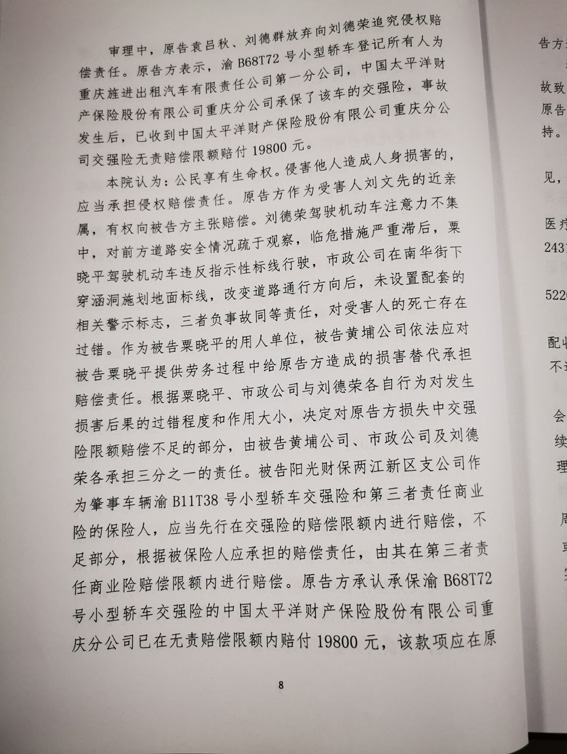 审理中，原告袁吕秋、刘德群放弃向刘德荣追究侵权赔
偿责任。原告方表示，渝B68T72号小型轿车登记所有人为
重庆旌进出租汽车有限责任公司第一分公司，中国太平洋财
产保险股份有限公司重庆分公司承保了该车的交强险，事故
发生后，已收到中国太平洋财产保险股份有限公司重庆分公
司交强险无责赔偿限额赔付19800元。
本院认为：公民享有生命权。侵害他人造成人身损害的，
应当承担侵权赔偿责任。原告方作为受害人刘文先的近亲
属，有权向被告方主张赔偿。刘德荣驾驶机动车注意力不集
中，对前方道路安全情况疏于观察，临危措施严重滞后，粟
晓平驾驶机动车违反指示性标线行驶，市政公司在南华街下
穿涵洞施划地面标线，改变道路通行方向后，未设置配套的
相关警示标志，三者负事故同等责任，对受害人的死亡存在
过错。作为被告粟晓平的用人单位，被告黄埔公司依法应对
被告粟晓平提供劳务过程中给原告方造成的损害替代承担
赔偿责任。根据粟晓平、市政公司与刘德荣各自行为对发生
损害后果的过错程度和作用大小，决定对原告方损失中交强
险限额赔偿不足的部分，由被告黄埔公司、市政公司及刘德
荣各承担三分之一的责任。被告阳光财保两江新区支公司作
为肇事车辆渝B11T38号小型轿车交强险和第三者责任商业
险的保险人，应当先行在交强险的赔偿限额内进行赔偿，不
足部分，根据被保险人应承担的赔偿责任，由其在第三者责
任商业险赔偿限额内进行赔偿。原告方承认承保渝B68T72
号小型轿车交强险的中国太平洋财产保险股份有限公司重
庆分公司已在无责赔偿限额内赔付19800元，该款项应在原
8
告方
故致
原告
持。
见，
医疗
2431
5220
配收
不
会
续
理